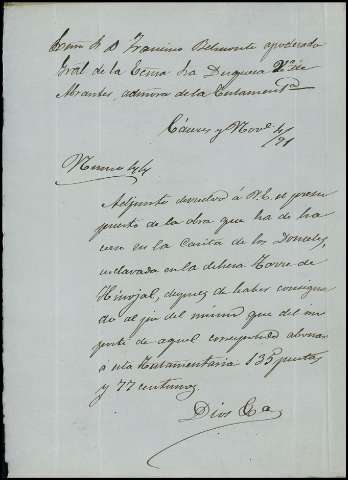 Exmo Sr. D. Francisco Belmonte apoderado
Gral de la Exma Sra Duquesa Vda de
Abrantes, admora de la Testamentª
Cáceres y Nove 4/91
Numo 44
Adjunto devuelvo á V.E. el presu
puesto de la obra que ha de ha
cerse en la Casita de los Donceles,
enclavada en la dehesa Torre de
Hinojal, despues de haber consigna
do al pie del mismo que del im
porte de aquel corresponde abonar
a esta Testamentaria 135 pesetas
y 77 centimos.
Dios &a